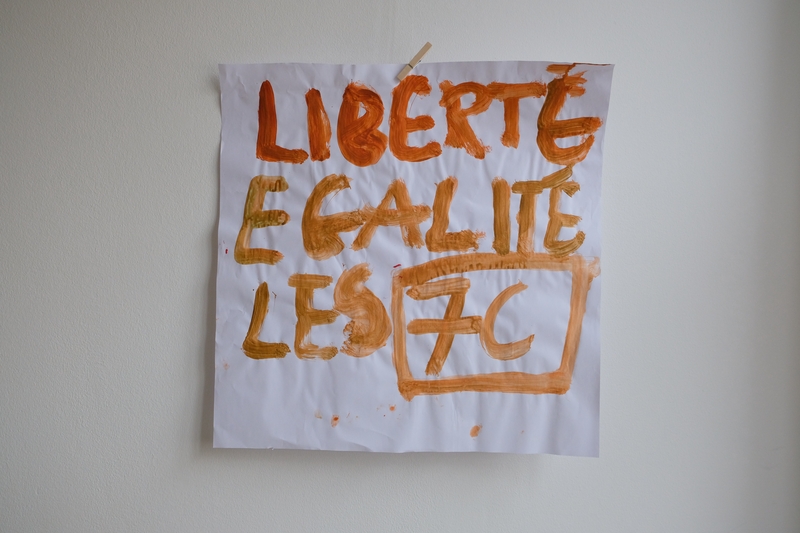 LIBERTÉ
EGALITÉ
LES 7C